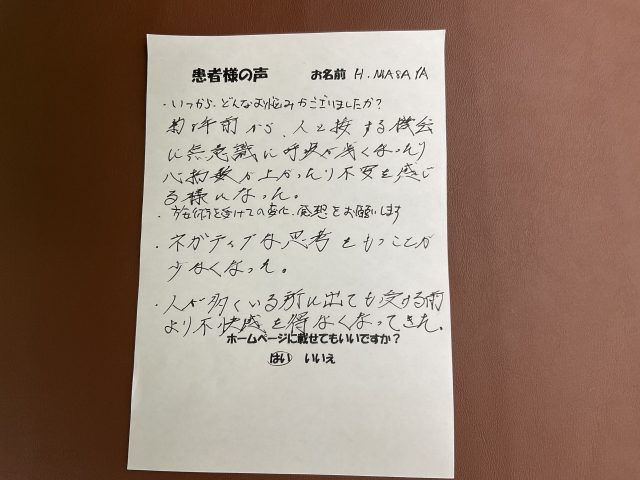 患者様の声 お名前 H.MASAYA
・いつから、どんなお悩みがございましたか？
約8年前から、人と接する機会
に無意識に呼吸が浅くなったり
心拍数が上がったり不安を感じ
る様になった。
・施術を受けての変化、感想をお願いします
・ネガティブな思考をもつことが
少なくなった。
・人が多くいる所に出ても受ける前
より不快感を得なくなってきた。
ホームページに載せてもいいですか？
はい いいえ